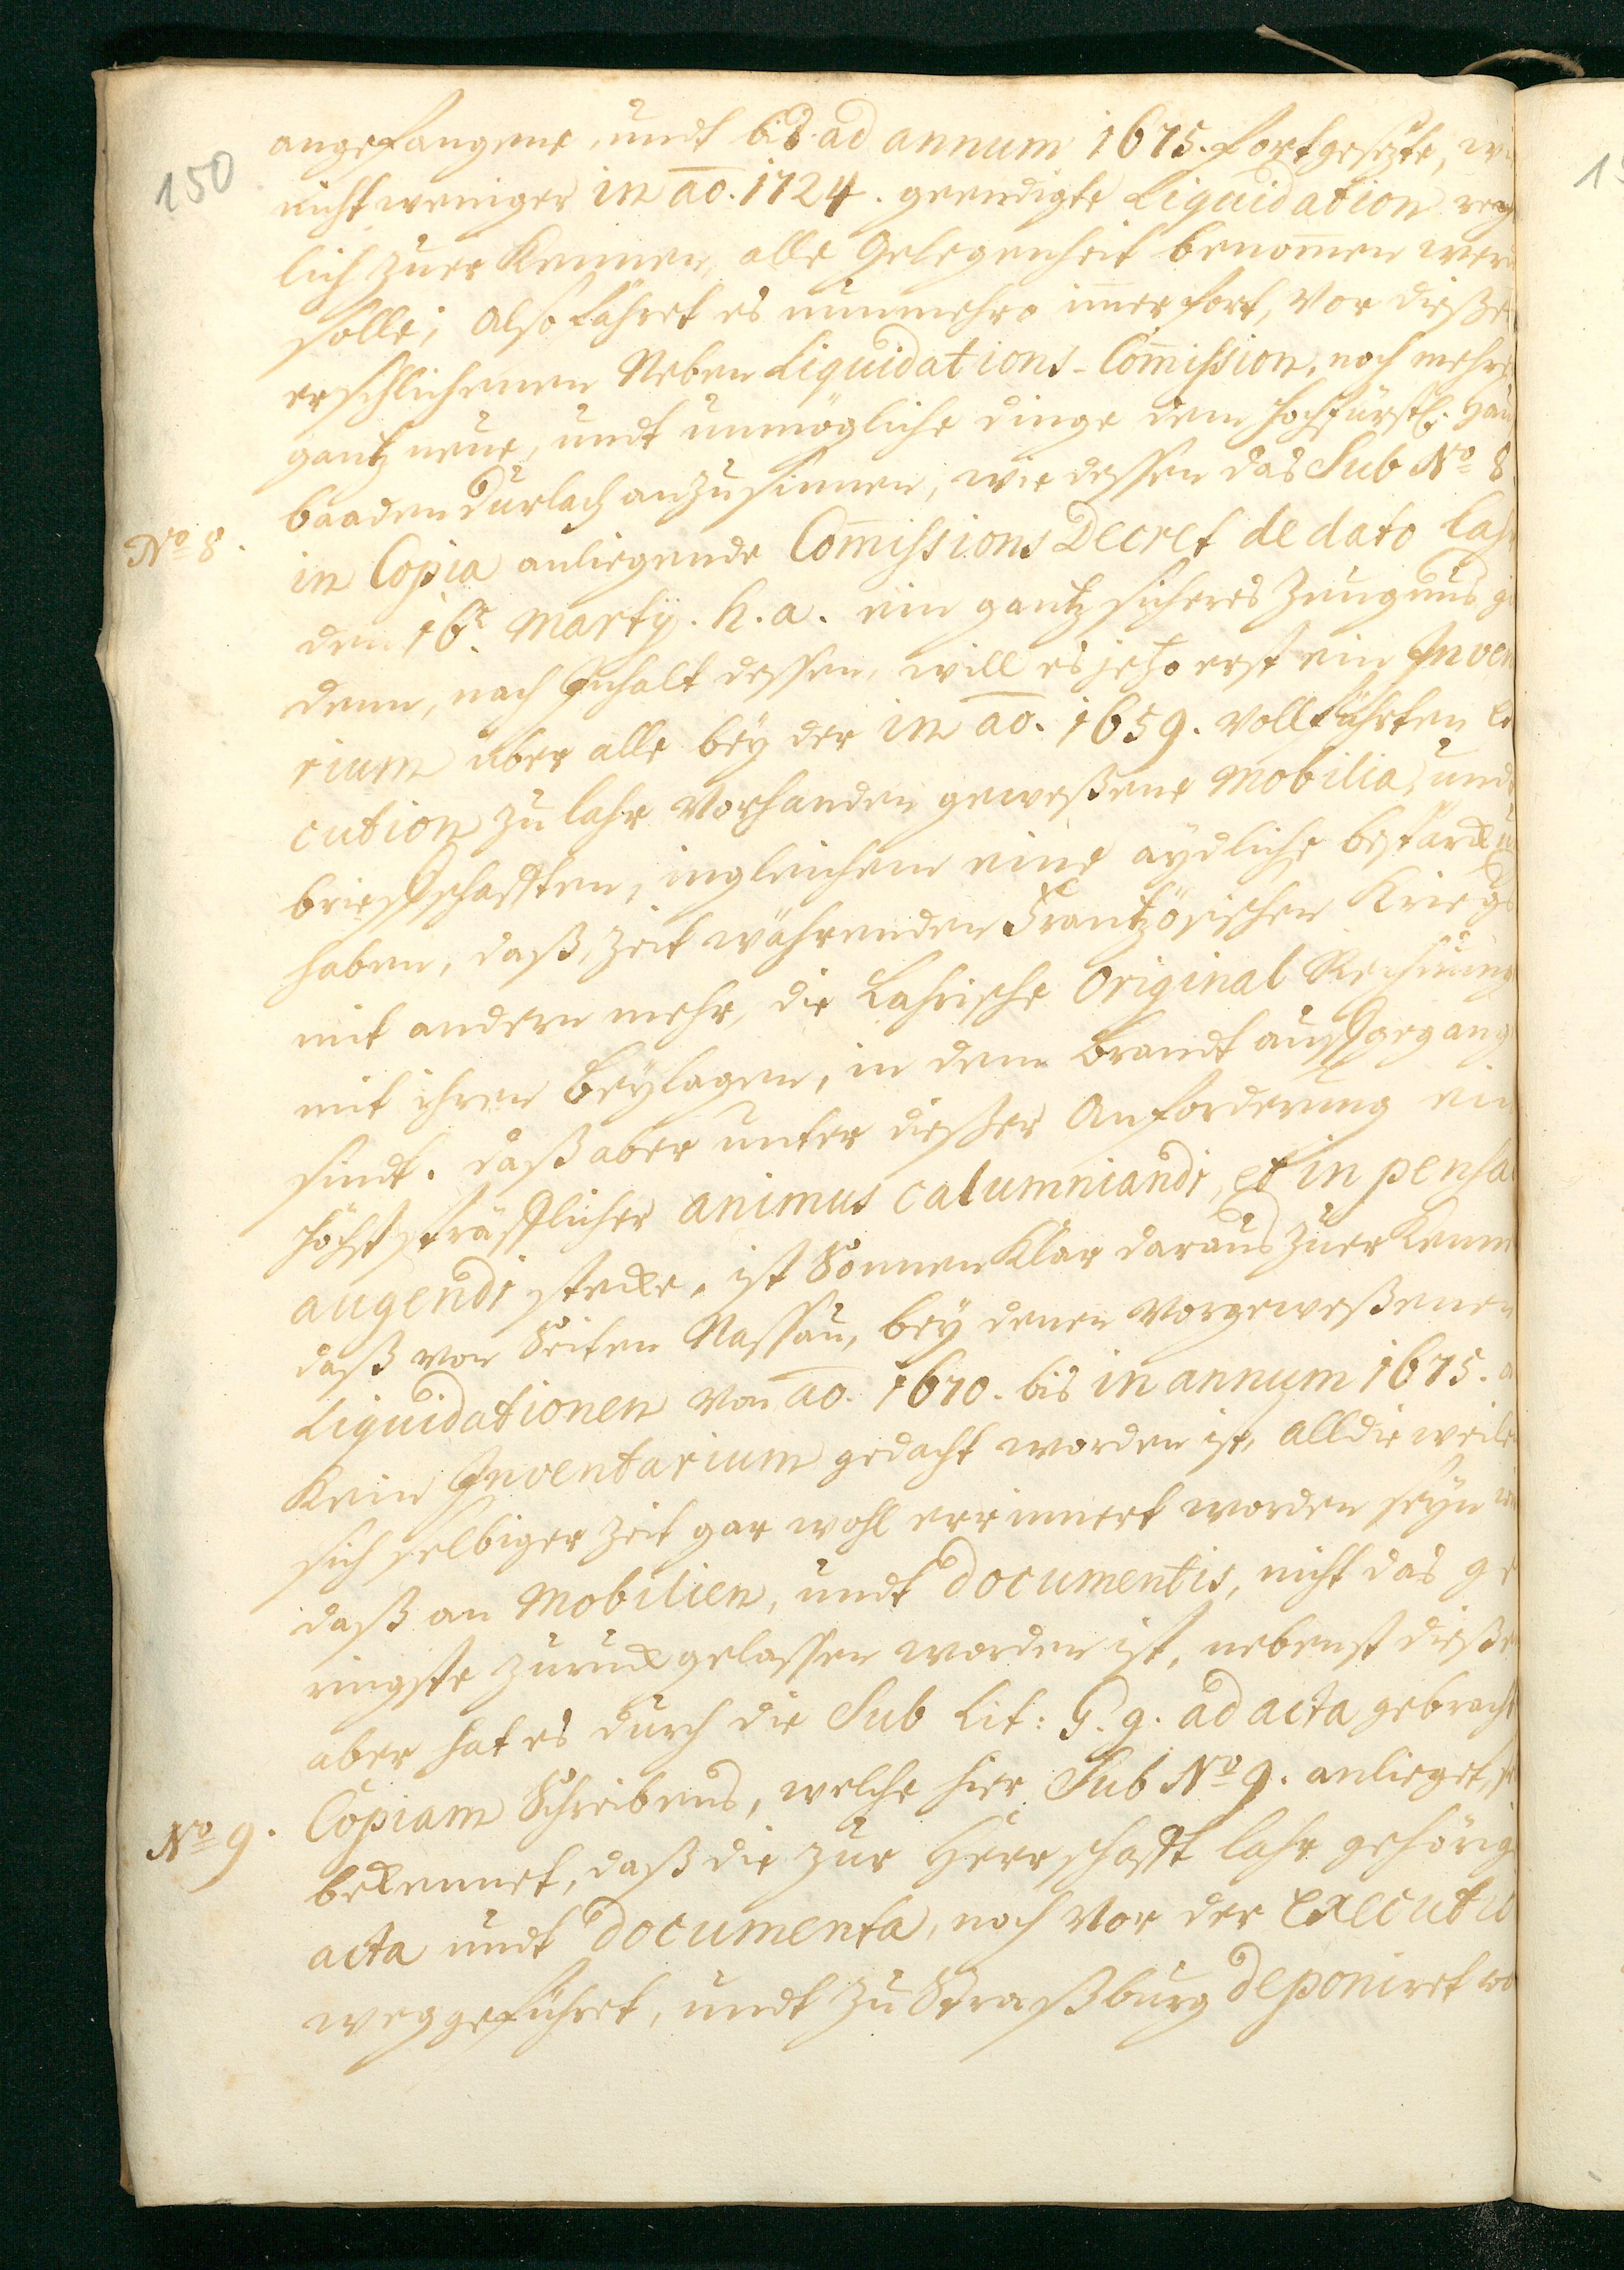 150
angefangene, undt bis ad annum 1675. fortgesezte,
nicht weniger in ao. 1724. geendigte Liquidation
lich zuer Kennen, alle Gelegenheit benom̅en
solle; Also fähret es nunmehro im̅er fort, vor dieße
erschlichenen Neben Liquidations-Com̅ission, noch mehre
gantz neue, undt unmögliche dinge dem hochfürstl. Hau
baaden Durlach anzusinnen, wie dessen das Sub No 8.
No 8.
in Copia anliegende Com̅issions Decret de dato Lahr
den 16t. Martÿ. h. a. ein gantz sicheres Zeugnus
denn, nach Inhalt dessen, will es jezo erst ein Inven
rium über alle beÿ der in ao. 1659. vollführten
cution zu Lahr vorhanden geweßene Mobilia, und
brieffschafften, ingleichem eine aydliche bestärck
haben, daß, zeit währenden Frantzösischen Kriegs
mit andern mehr, die Lahrische Original Rechnung
mit ihren Beÿlagen, in dem Brandt auffgegang
sindt. daß aber unter dießer Anforderung ein
höchst sträfflicher animus calumniandi, et in pensa
augendi stecke, ist Sonnen Klar daraus zuer Kenn
daß von Seiten Nassau, beÿ denen vorgeweßenen
Liquidationen von ao. 1670. bis in annum 1675.
Kein Inventarium gedacht worden ist, alldieweile
sich selbiger Zeit gar wohl errinnert worden seÿn
daß an Mobilien, undt documentis, nicht das ge
ringste zuruck gelassen worden ist, nebenst dieße
aber hat es durch die Sub Lit: G. g. ad acta gebracht
Copiam Schreibens, welche hier Sub No 9. anlieget,
No 9.
bekennet, daß die zur Herrschafft Lahr gehörig
acta undt documenta, noch vor der Executio
weggeführet, undt zu Straßburg deponiret